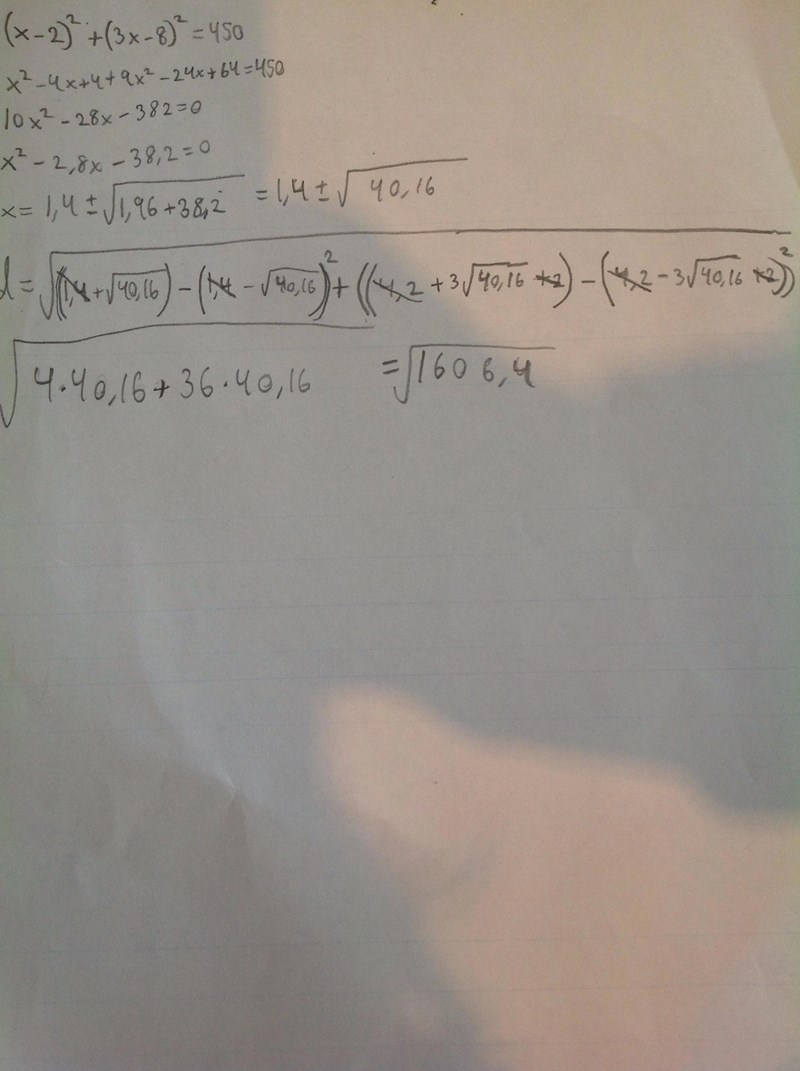 (x-2)² + (3x-8)² = 450
x² - 4x + 4 + 9x² - 24x + 64 = 450
10x² - 28x - 382 = 0
x² - 2,8x - 38,2 = 0
x = 1,4 ± √1,96 + 38,2 = 1,4 ± √40,16
d = √((1,4 + √40,16) - (1,4 - √40,16))² + ((4,2 + 3√40,16 + 2) - (4,2 - 3√40,16 + 2))²
√4·40,16 + 36·40,16 = √1606,4